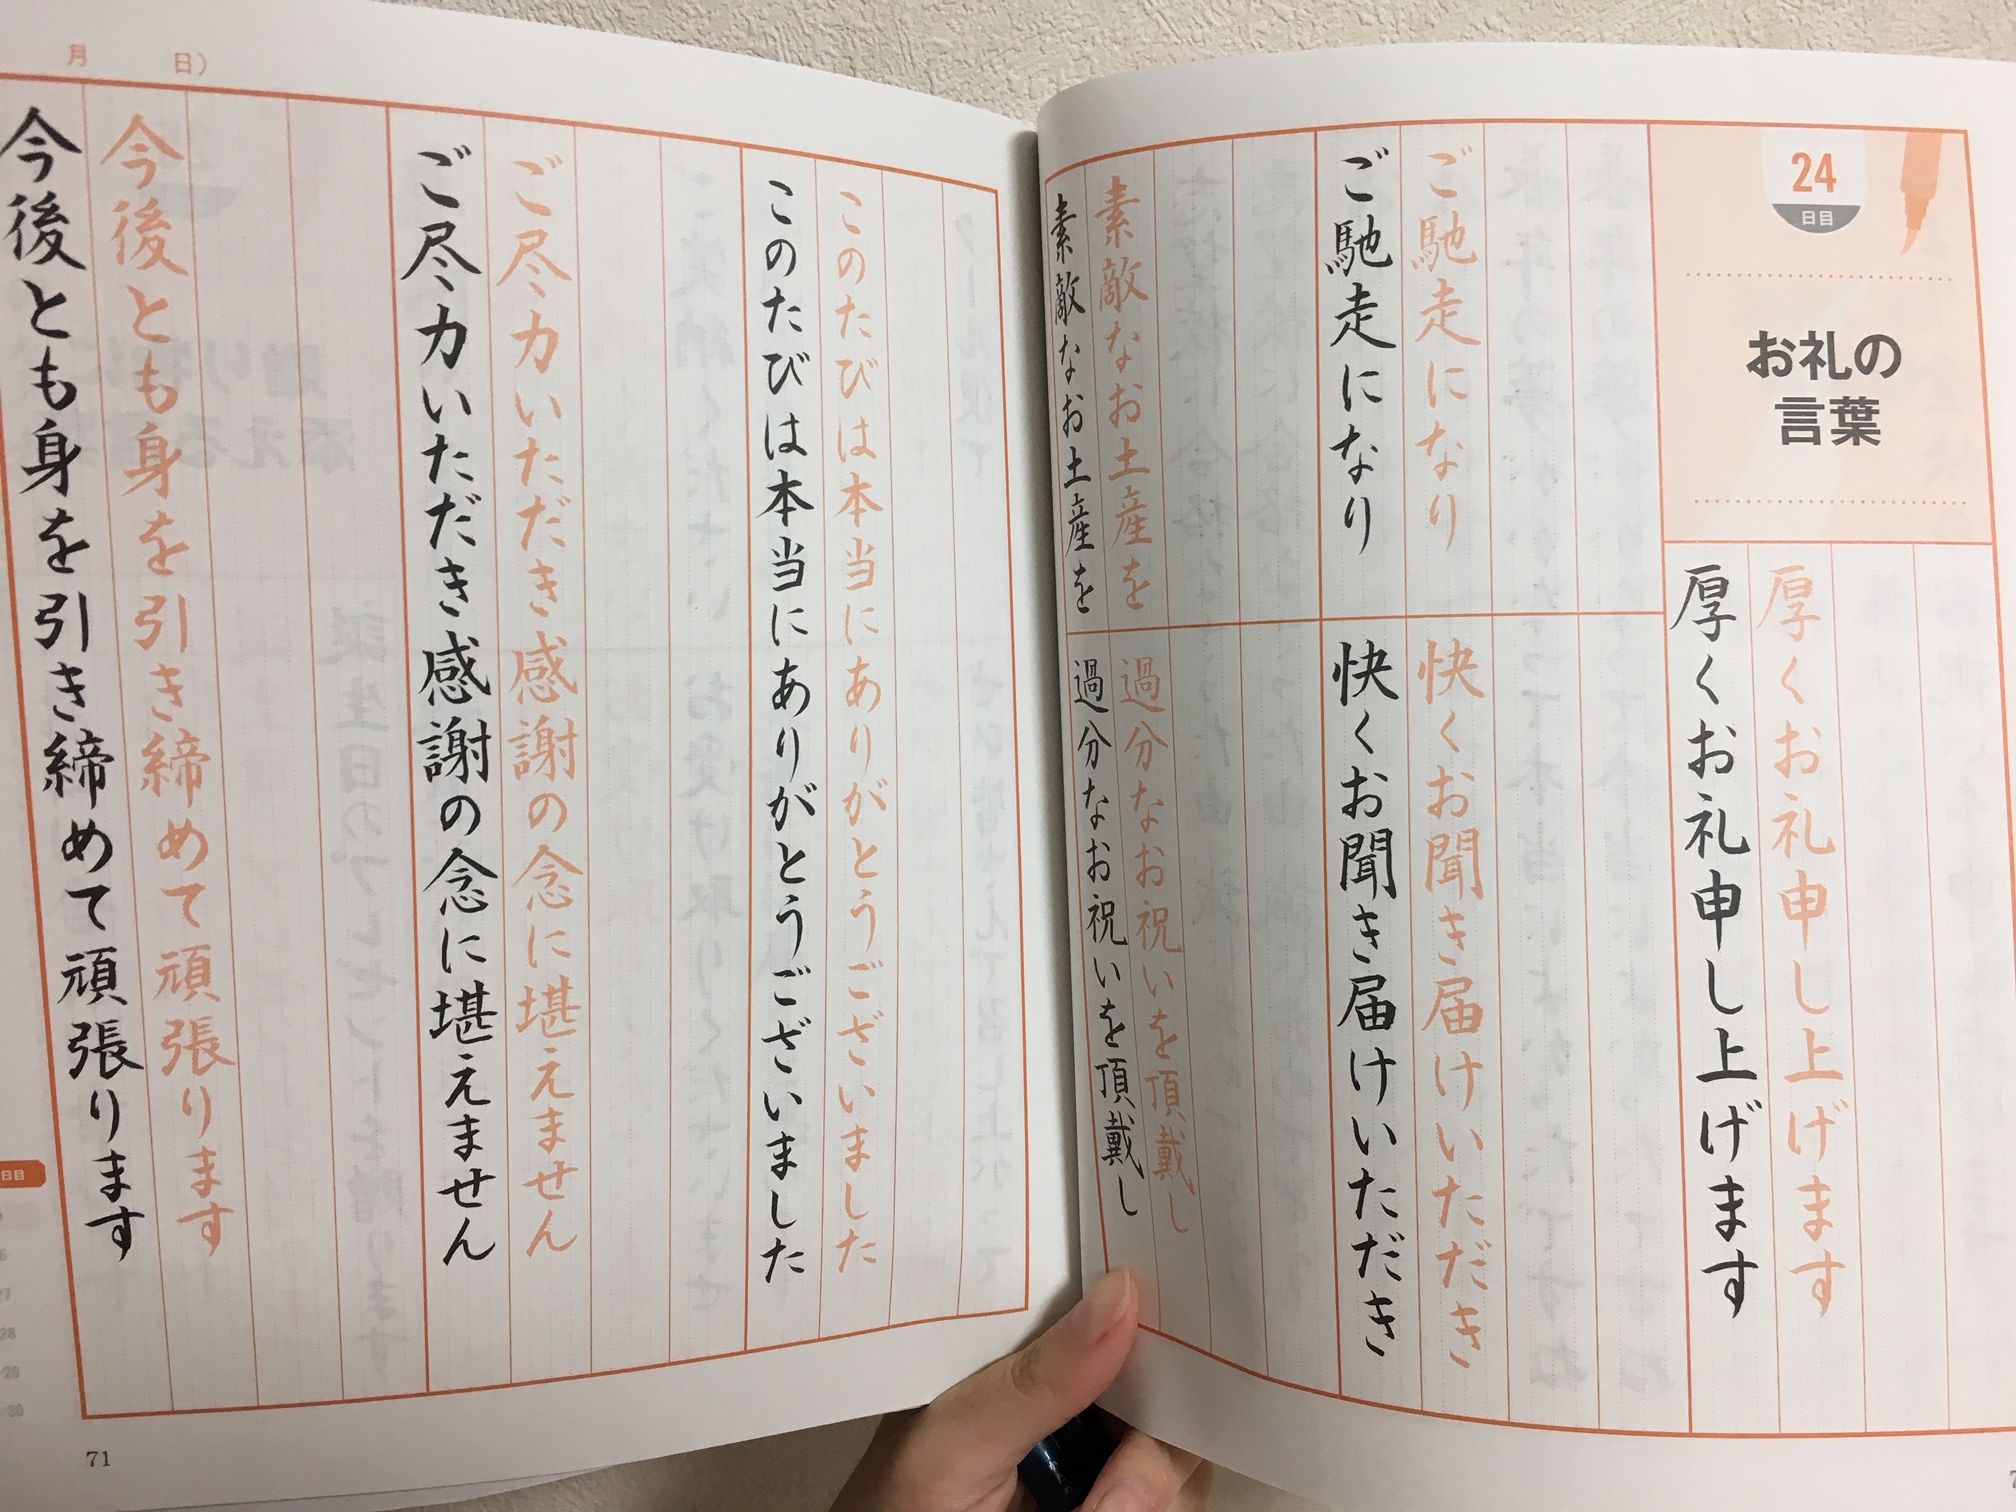 24
日目
お礼の
言葉
厚くお礼申し上げます
厚くお礼申し上げます
ご馳走になり
ご馳走になり
快くお聞き届けいただき
快くお聞き届けいただき
素敵なお土産を
素敵なお土産を
過分なお祝いを頂戴し
過分なお祝いを頂戴し
月 日)
このたびは本当にありがとうございました
このたびは本当にありがとうございました
ご尽力いただき感謝の念に堪えません
ご尽力いただき感謝の念に堪えません
今後とも身を引き締めて頑張ります
今後とも身を引き締めて頑張ります
日目
28
29
30
71